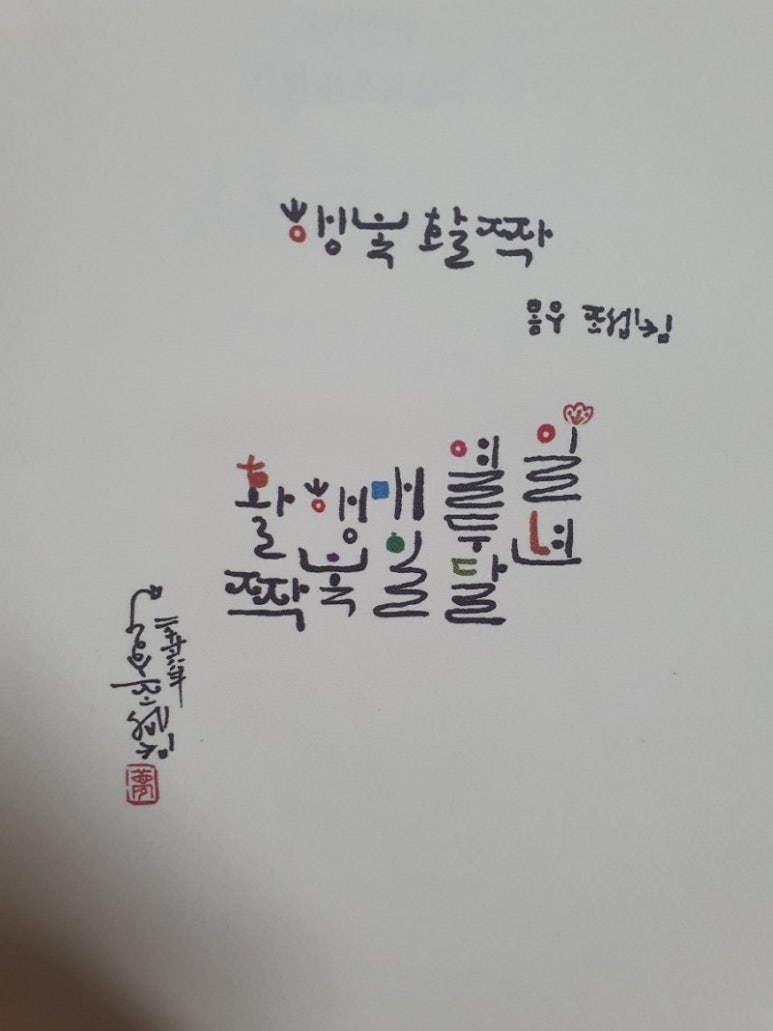 행복 활짝
몽우 조셉킴
일년
열두달
매일
행복
활짝
夢